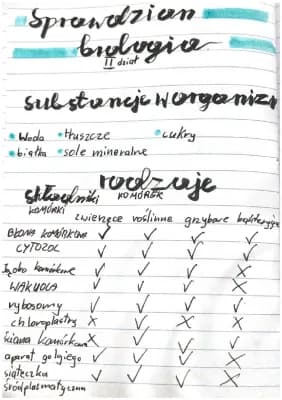 Sprawdzian
biologia
II dział
substancje w organizm
• Woda • tłuszcze • cukry
• białka • sole mineralne
rodzaje
składniki KOMÓREK
KOMÓRKI zwierzęce roślinne grzybowe bakteryjne
BŁONA KOMÓRKOWA ✓ ✓ ✓ ✓
CYTOZOL ✓ ✓ ✓ ✓
Jądro komórkowe ✓ ✓ ✓ X
WAKUOLA ✓ ✓ ✓ X
rybosomy ✓ ✓ ✓ ✓
chloroplastry X ✓ X X
ściana komórkowa X ✓ ✓ ✓
aparat golgiego ✓ ✓ ✓ X
siateczka ✓ ✓ ✓ X
śródplazmatyczna